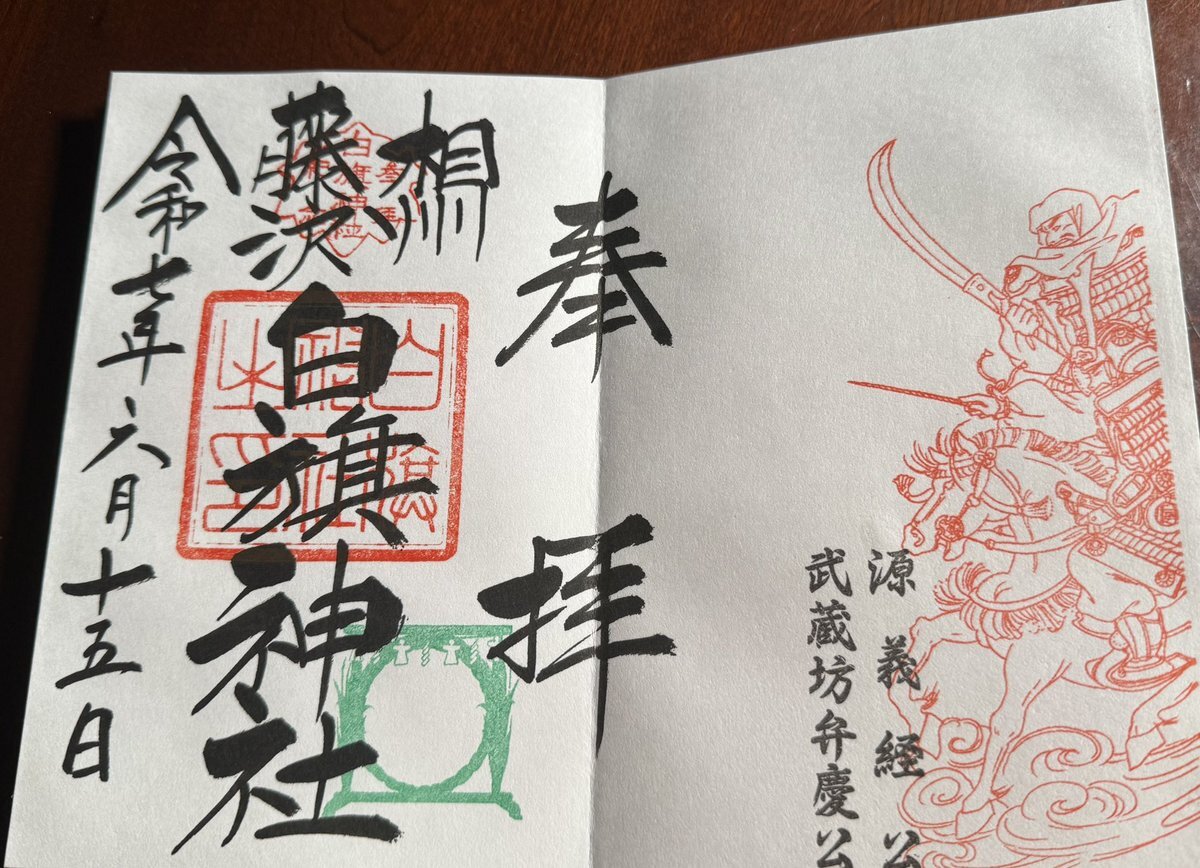 源義経公
武蔵坊弁慶公
奉拝
相州
藤沢
白旗神社
令和七年六月十五日
白旗
神社
之印